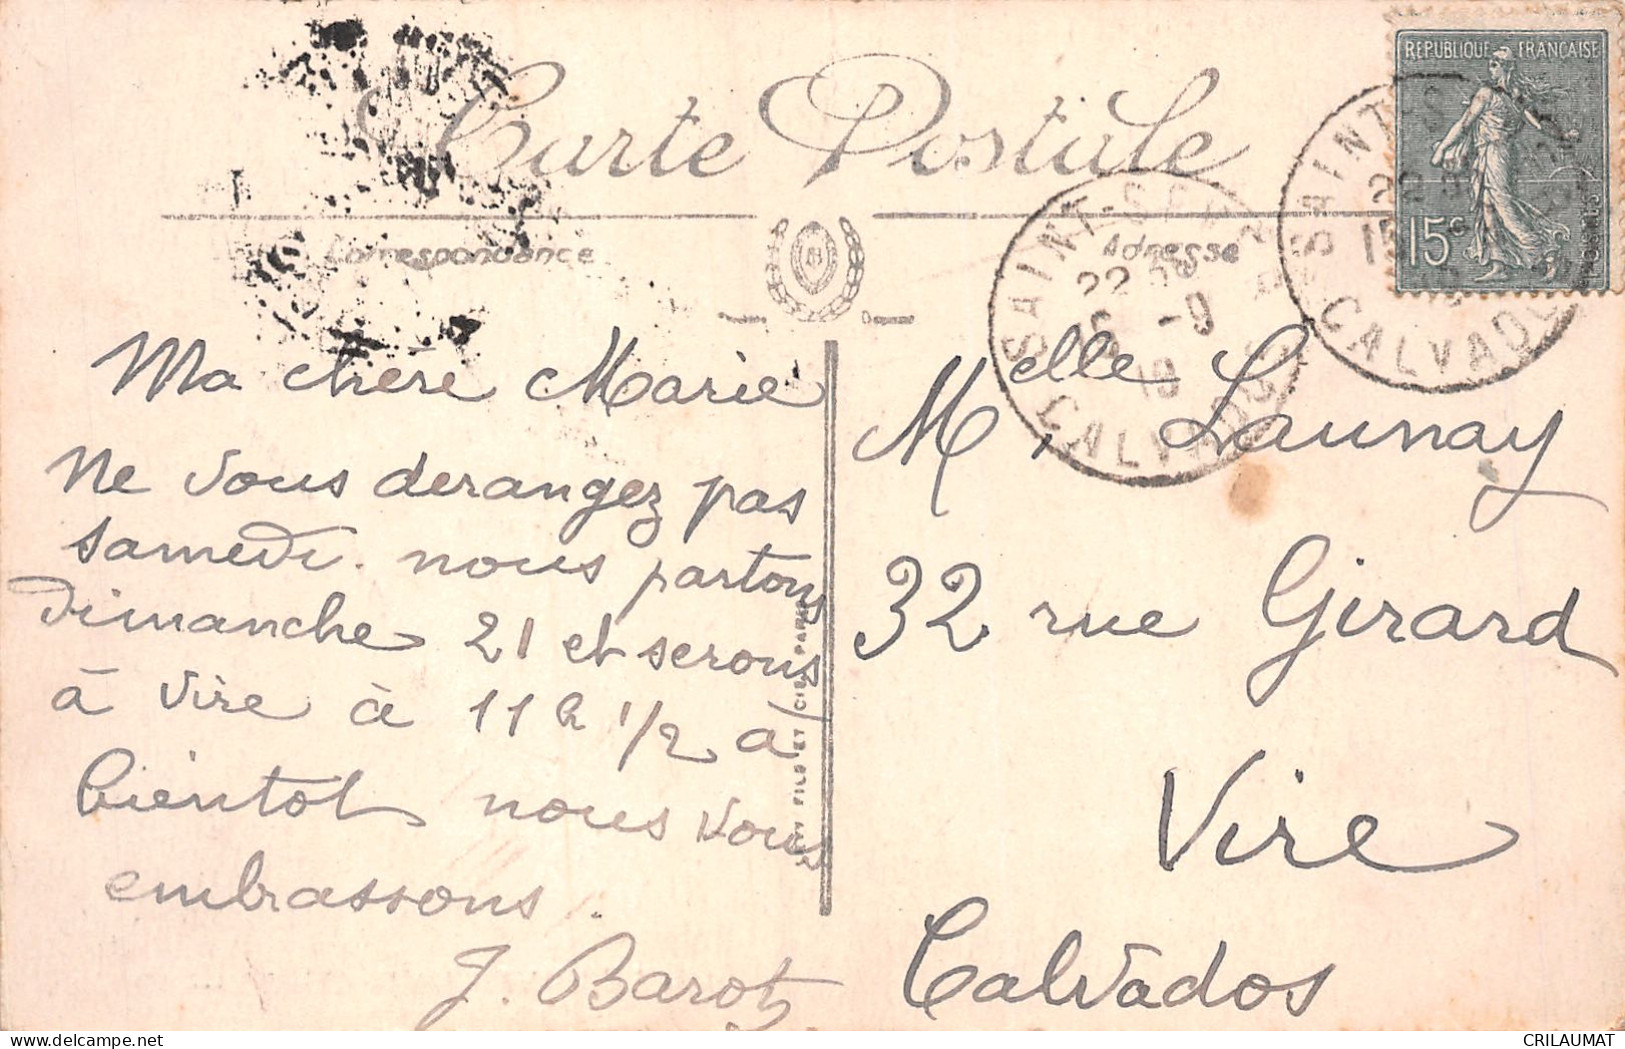 Carte Postale
Correspondance
Adresse
REPUBLIQUE FRANÇAISE
15c
SAINT-S
22
15
CALVADOS
SAINT-SE
22
-9
19
CALVADOS
Ma chère Marie
Ne vous derangez pas
samedi. nous partons
dimanche 21 et serons
à Vire à 11 h 1/2 à
bientot nous vous
embrassons.
J. Barot
FILS ET CIE, PARIS
Melle Launay
32 rue Girard
Vire
Calvados
CRILAUMAT